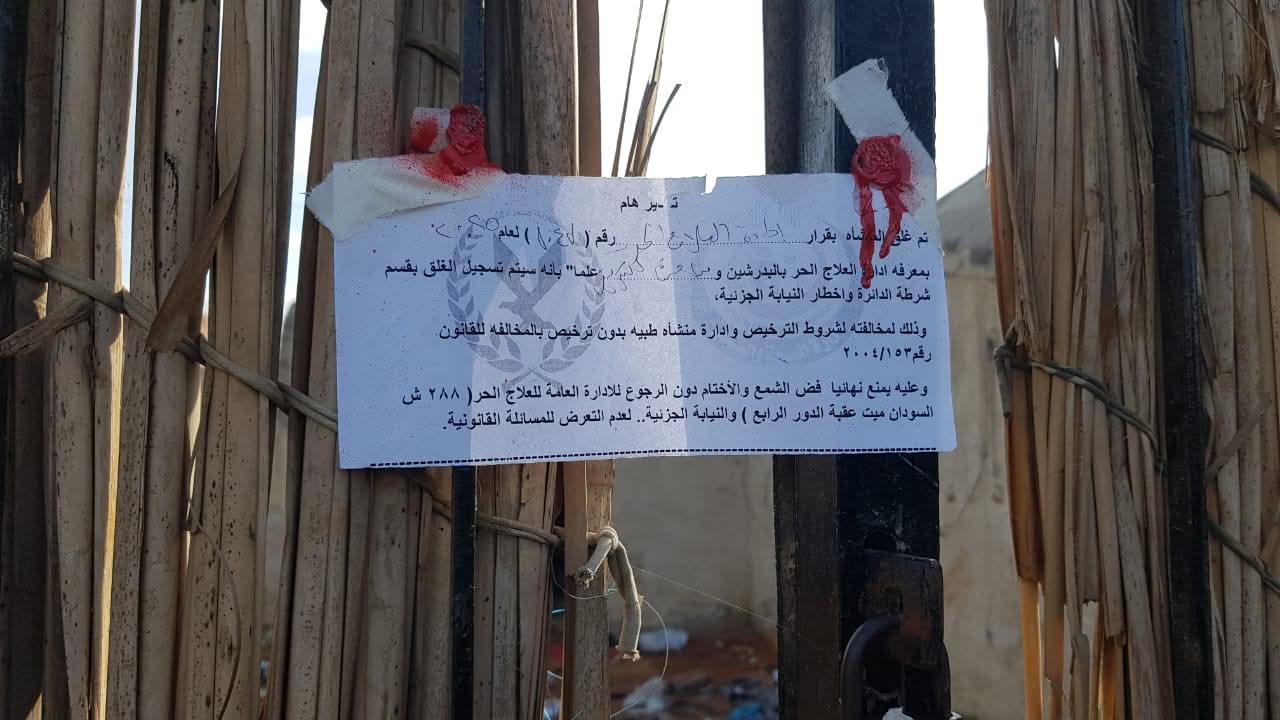 هام
تم غلق المنشأه بقرار ادارة العلاج الحر رقم ( ) لعام ٢٠٢٥
بمعرفه ادارة العلاج الحر بالبدرشين و علما" بانه سيتم تسجيل الغلق بقسم
شرطة الدائرة واخطار النيابة الجزئية،
وذلك لمخالفته لشروط الترخيص وادارة منشأه طبيه بدون ترخيص بالمخالفه للقانون
رقم٢٠٠٤/١٥٣
وعليه يمنع نهائيا فض الشمع والأختام دون الرجوع للادارة العامة للعلاج الحر( ٢٨٨ ش
السودان ميت عقبة الدور الرابع ) والنيابة الجزئية.. لعدم التعرض للمسائلة القانونية.